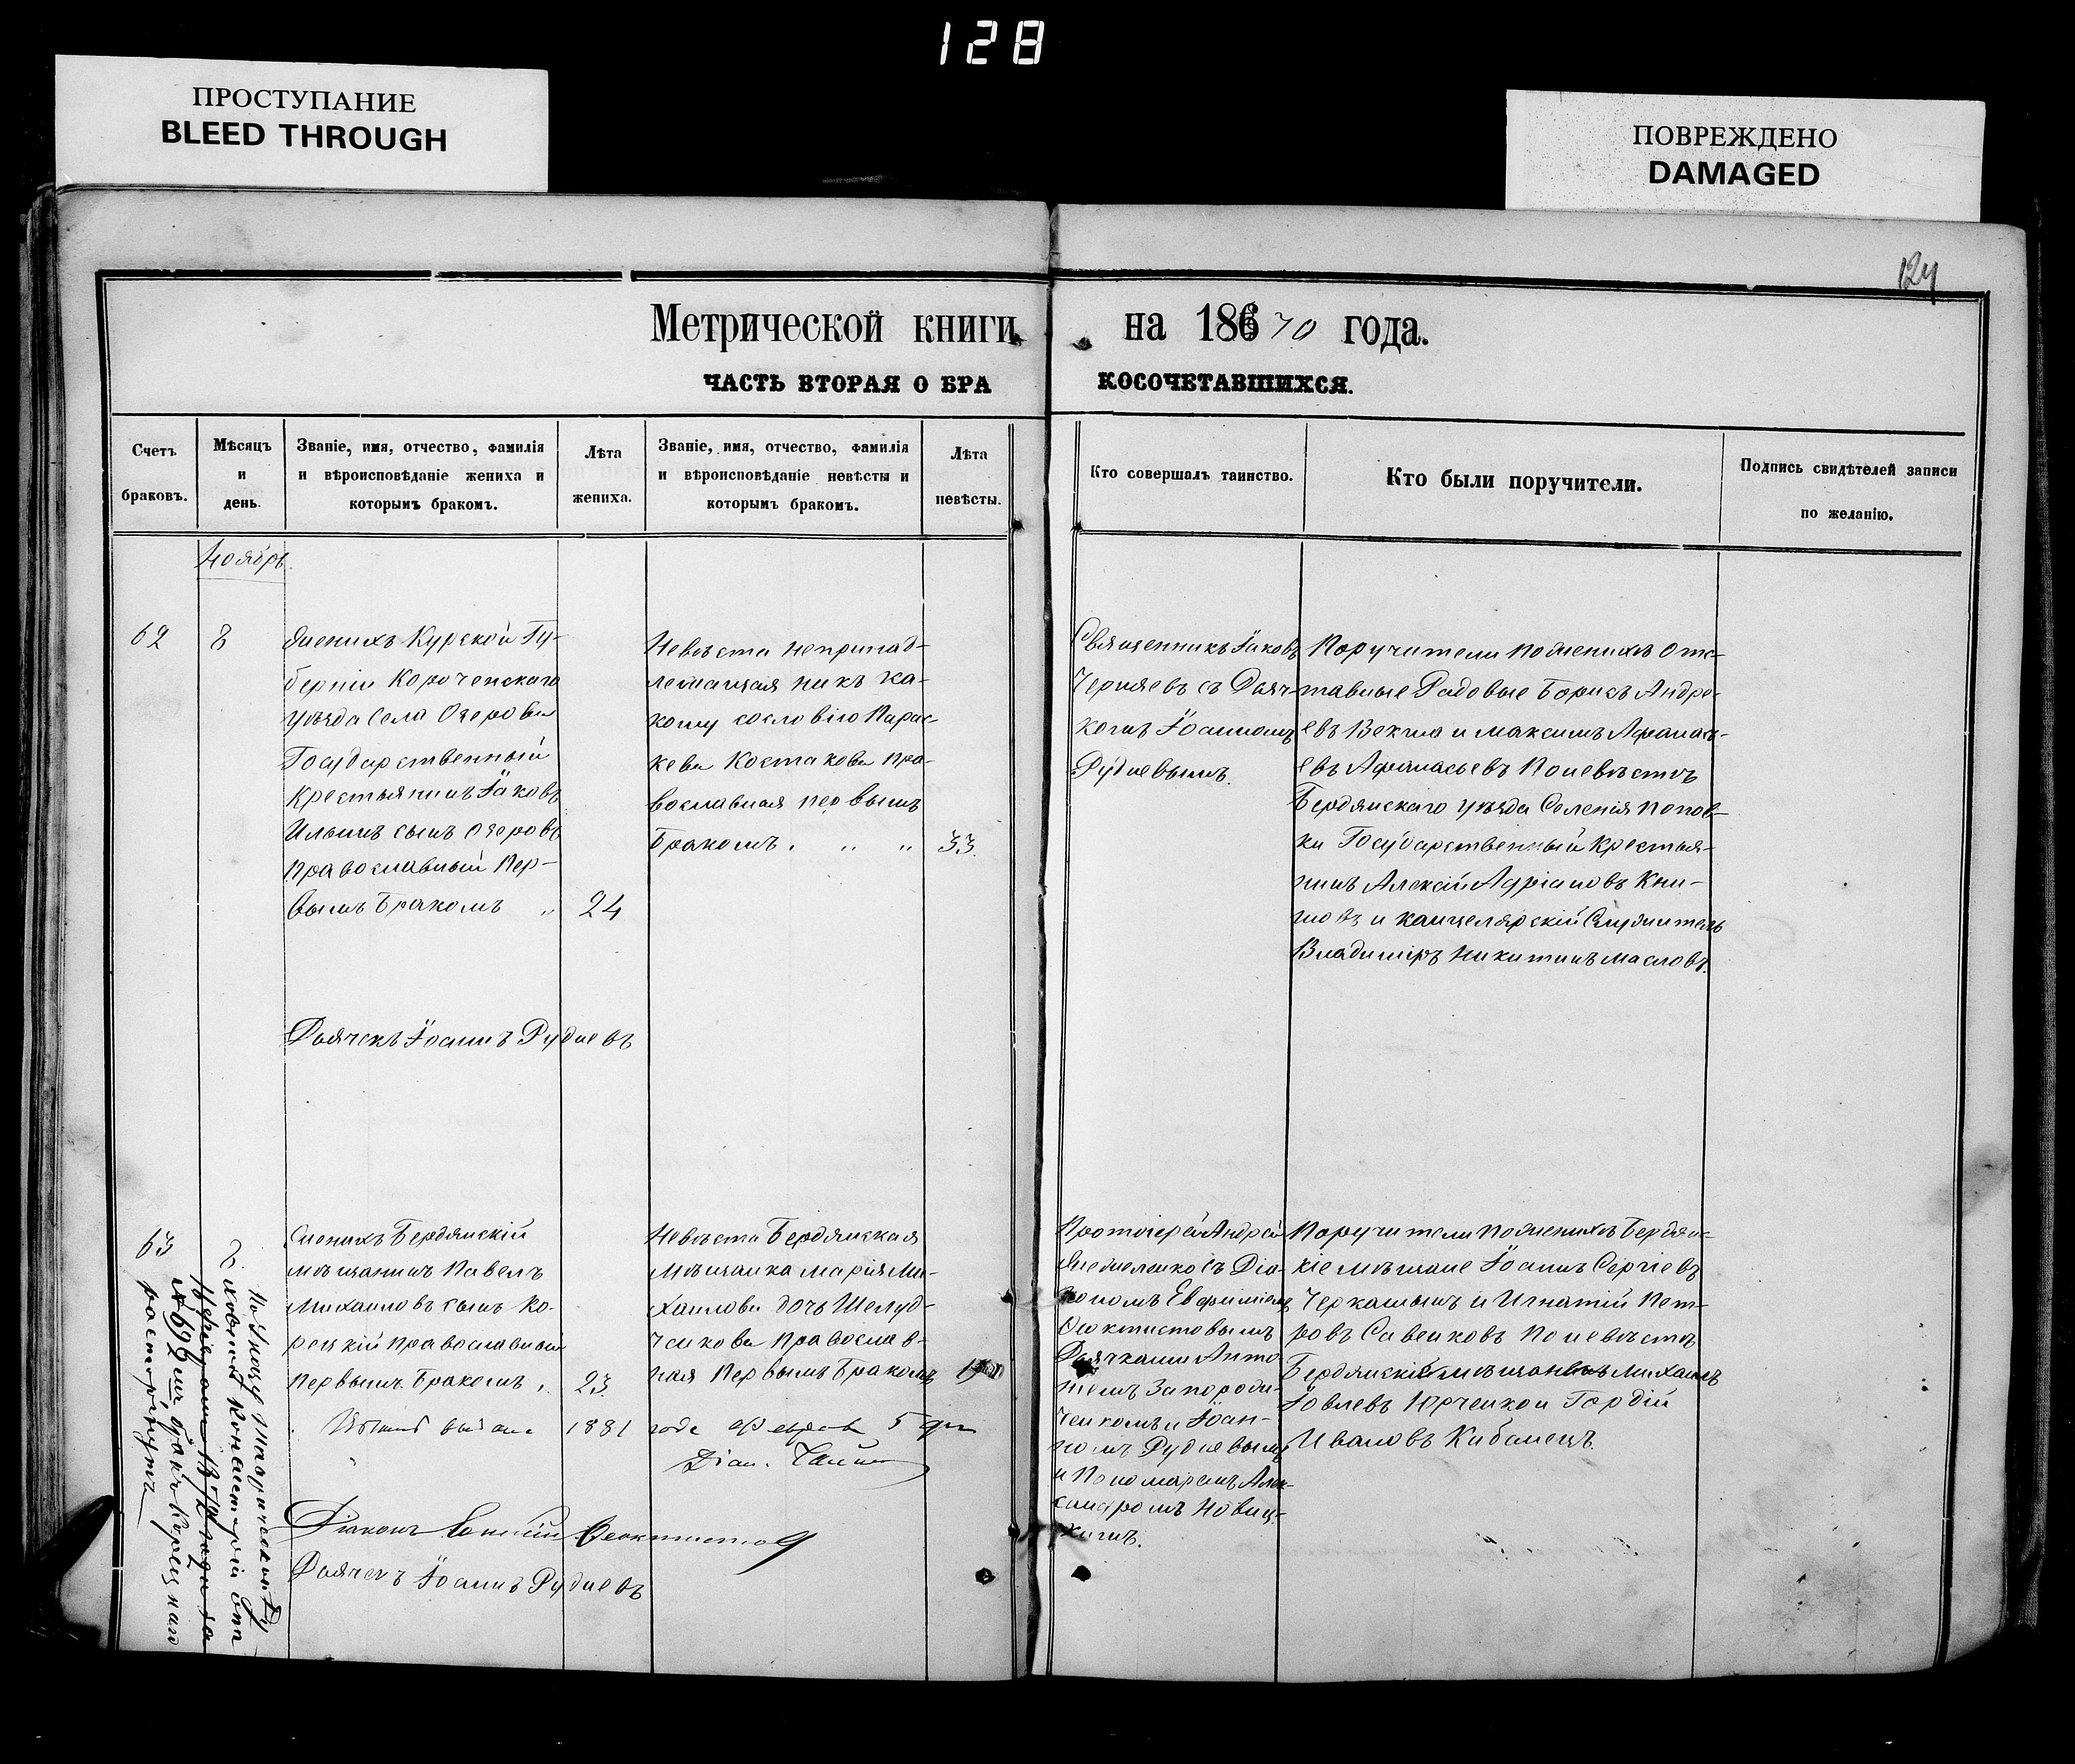 128
ПРОСТУПАНИЕ
BLEED THROUGH
ПОВРЕЖДЕНО
DAMAGED
124
Метрической книги на 186 70 года.
ЧАСТЬ ВТОРАЯ О БРАКОСОЧЕТАВШИХСЯ.
Счетъ браковъ.
Мѣсяцъ и день.
Званіе, имя, отчество, фамилія и вѣроисповѣданіе жениха и которымъ бракомъ.
Лѣта жениха.
Званіе, имя, отчество, фамилія и вѣроисповѣданіе невѣсты и которымъ бракомъ.
Лѣта невѣсты.
Кто совершалъ таинство.
Кто были поручители.
Подпись свидѣтелей записи по желанію.
Ноябрь
62
8
Женихъ Курской Гу-
берніи Короченскаго
уѣзда Села Озерова
Государственный
Крестьянинъ Іаковъ
Ильинъ сынъ Озеровъ
православный пер-
вымъ бракомъ „
24
Невѣста непринад-
лежащая ни къ ка-
кому сословію Парас-
кева Костакова пра-
вославная первымъ
бракомъ. „ „
33.
Священникъ Іаковъ
Черняевъ съ Дьяч-
комъ Іоанномъ
Рудневымъ.
Поручители по женихѣ отс-
тавные Рядовые Борисъ Андре-
евъ Векша и Максимъ Афанась-
евъ Афанасьевъ По невѣстѣ
Бердянскаго уѣзда Селенія Попов-
ки Государственный Крестья-
нинъ Алексѣй Адріановъ
и канцелярскій Служитель
Владиміръ Никитинъ Масловъ.
Дьячекъ Іоаннъ Рудневъ
63
8.
Женихъ Бердянскій
мѣщанинъ Павелъ
Михаиловъ сынъ Ко-
рецкій православный
первымъ бракомъ.
23
Невѣста Бердянская
Мѣщанка Марія Ми-
хаилова дочь Шелуд-
ченкова православ-
ная первымъ бракомъ
19
Протоіерей Андрей
съ Діа-
кономъ Евфиміемъ
Феоктистовымъ
Дьячками Анто-
ніемъ Запорож-
ченкомъ и Іоан-
номъ Рудневымъ
и Пономаремъ Алек-
сандромъ Новиц-
кимъ.
Поручители по женихѣ Бердян-
кіе мѣщане Іоаннъ Сергіевъ
Черкашинъ и Игнатій Пет-
ровъ Савенковъ По невѣстѣ
Бердянскіе мѣщане Михаилъ
Іовлевъ Юрченко и Гордій
Ивановъ Кибанецъ.
выдана 1881 года февраля 5 дня
Діак.
Діаконъ Феоктистовъ
Дьячекъ Іоаннъ Рудневъ
По Указу Таврической Ду-
ховной Консисторіи отъ
за
№ 692 бракъ Корецкаго
расторгнутъ